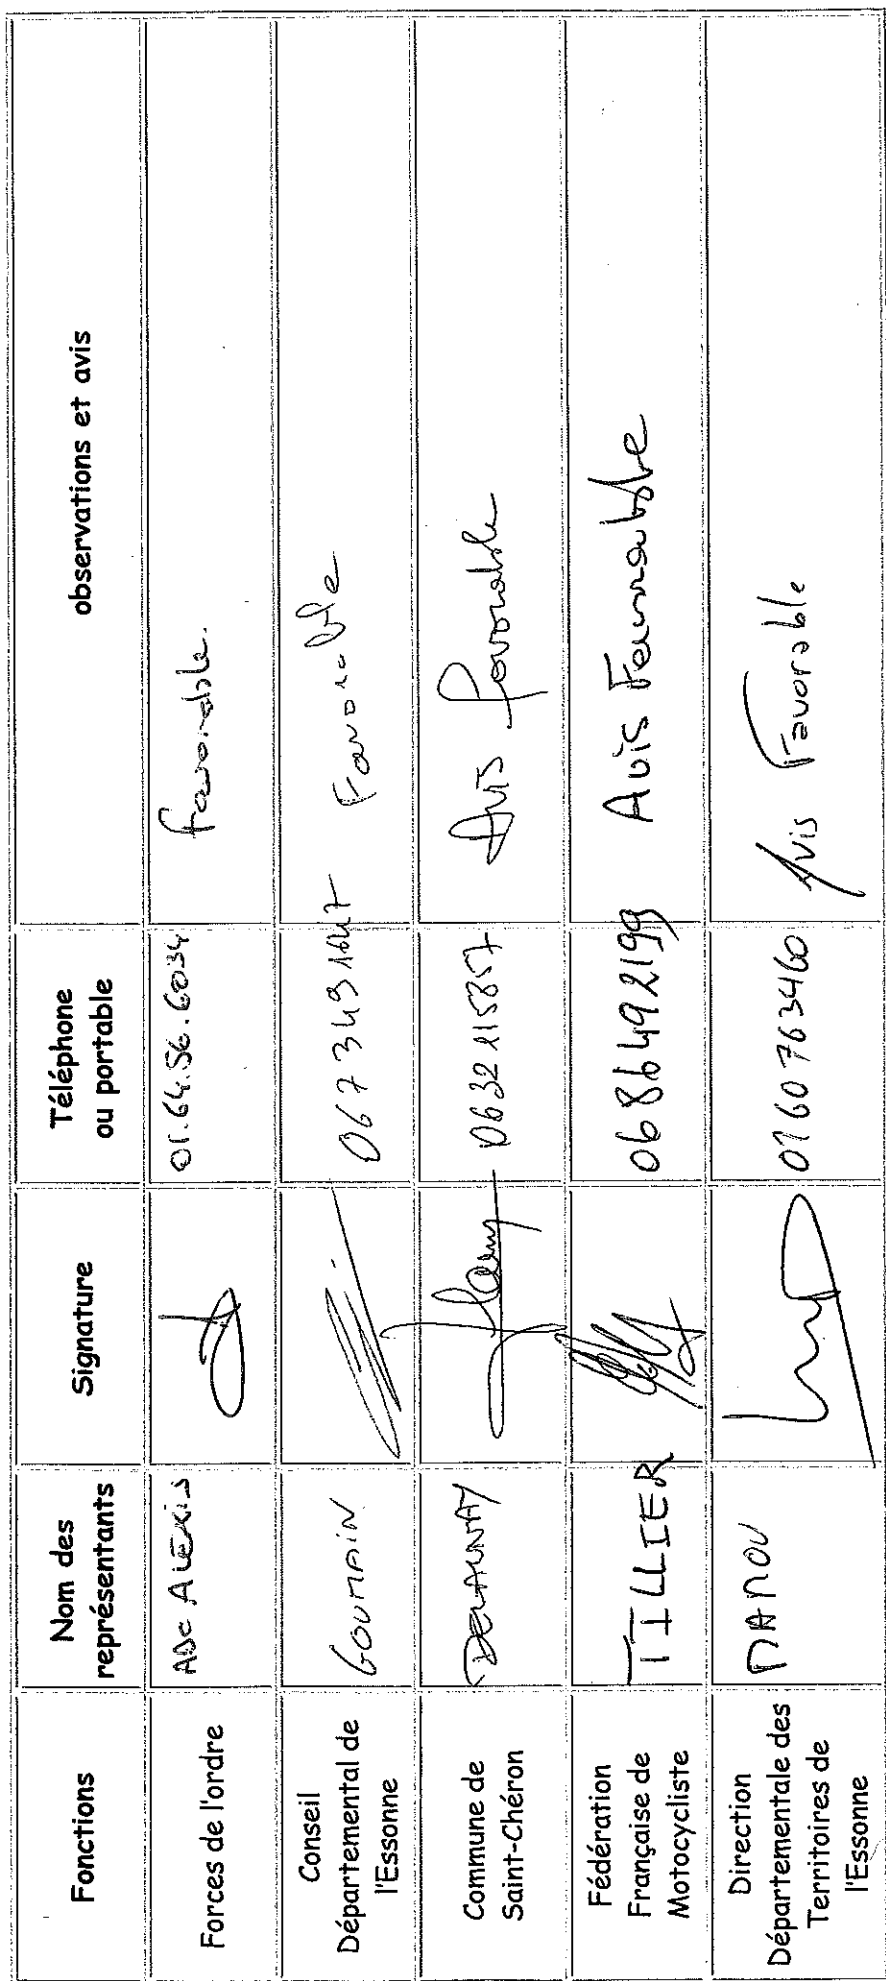 Fonctions
Nom des
représentants
Signature
Téléphone
ou portable
observations et avis
Forces de l'ordre
ADC ALEXIS
01.64.56.6034
favorable.
Conseil
Départemental de
l'Essonne
GOUMAIN
0673491647
Favorable
Commune de
Saint-Chéron
DELAUNAY
0632115857
Avis favorable
Fédération
Française de
Motocycliste
TILLIER
0686492199
Avis Favorable
Direction
Départementale des
Territoires de
l'Essonne
0160763460
Avis Favorable